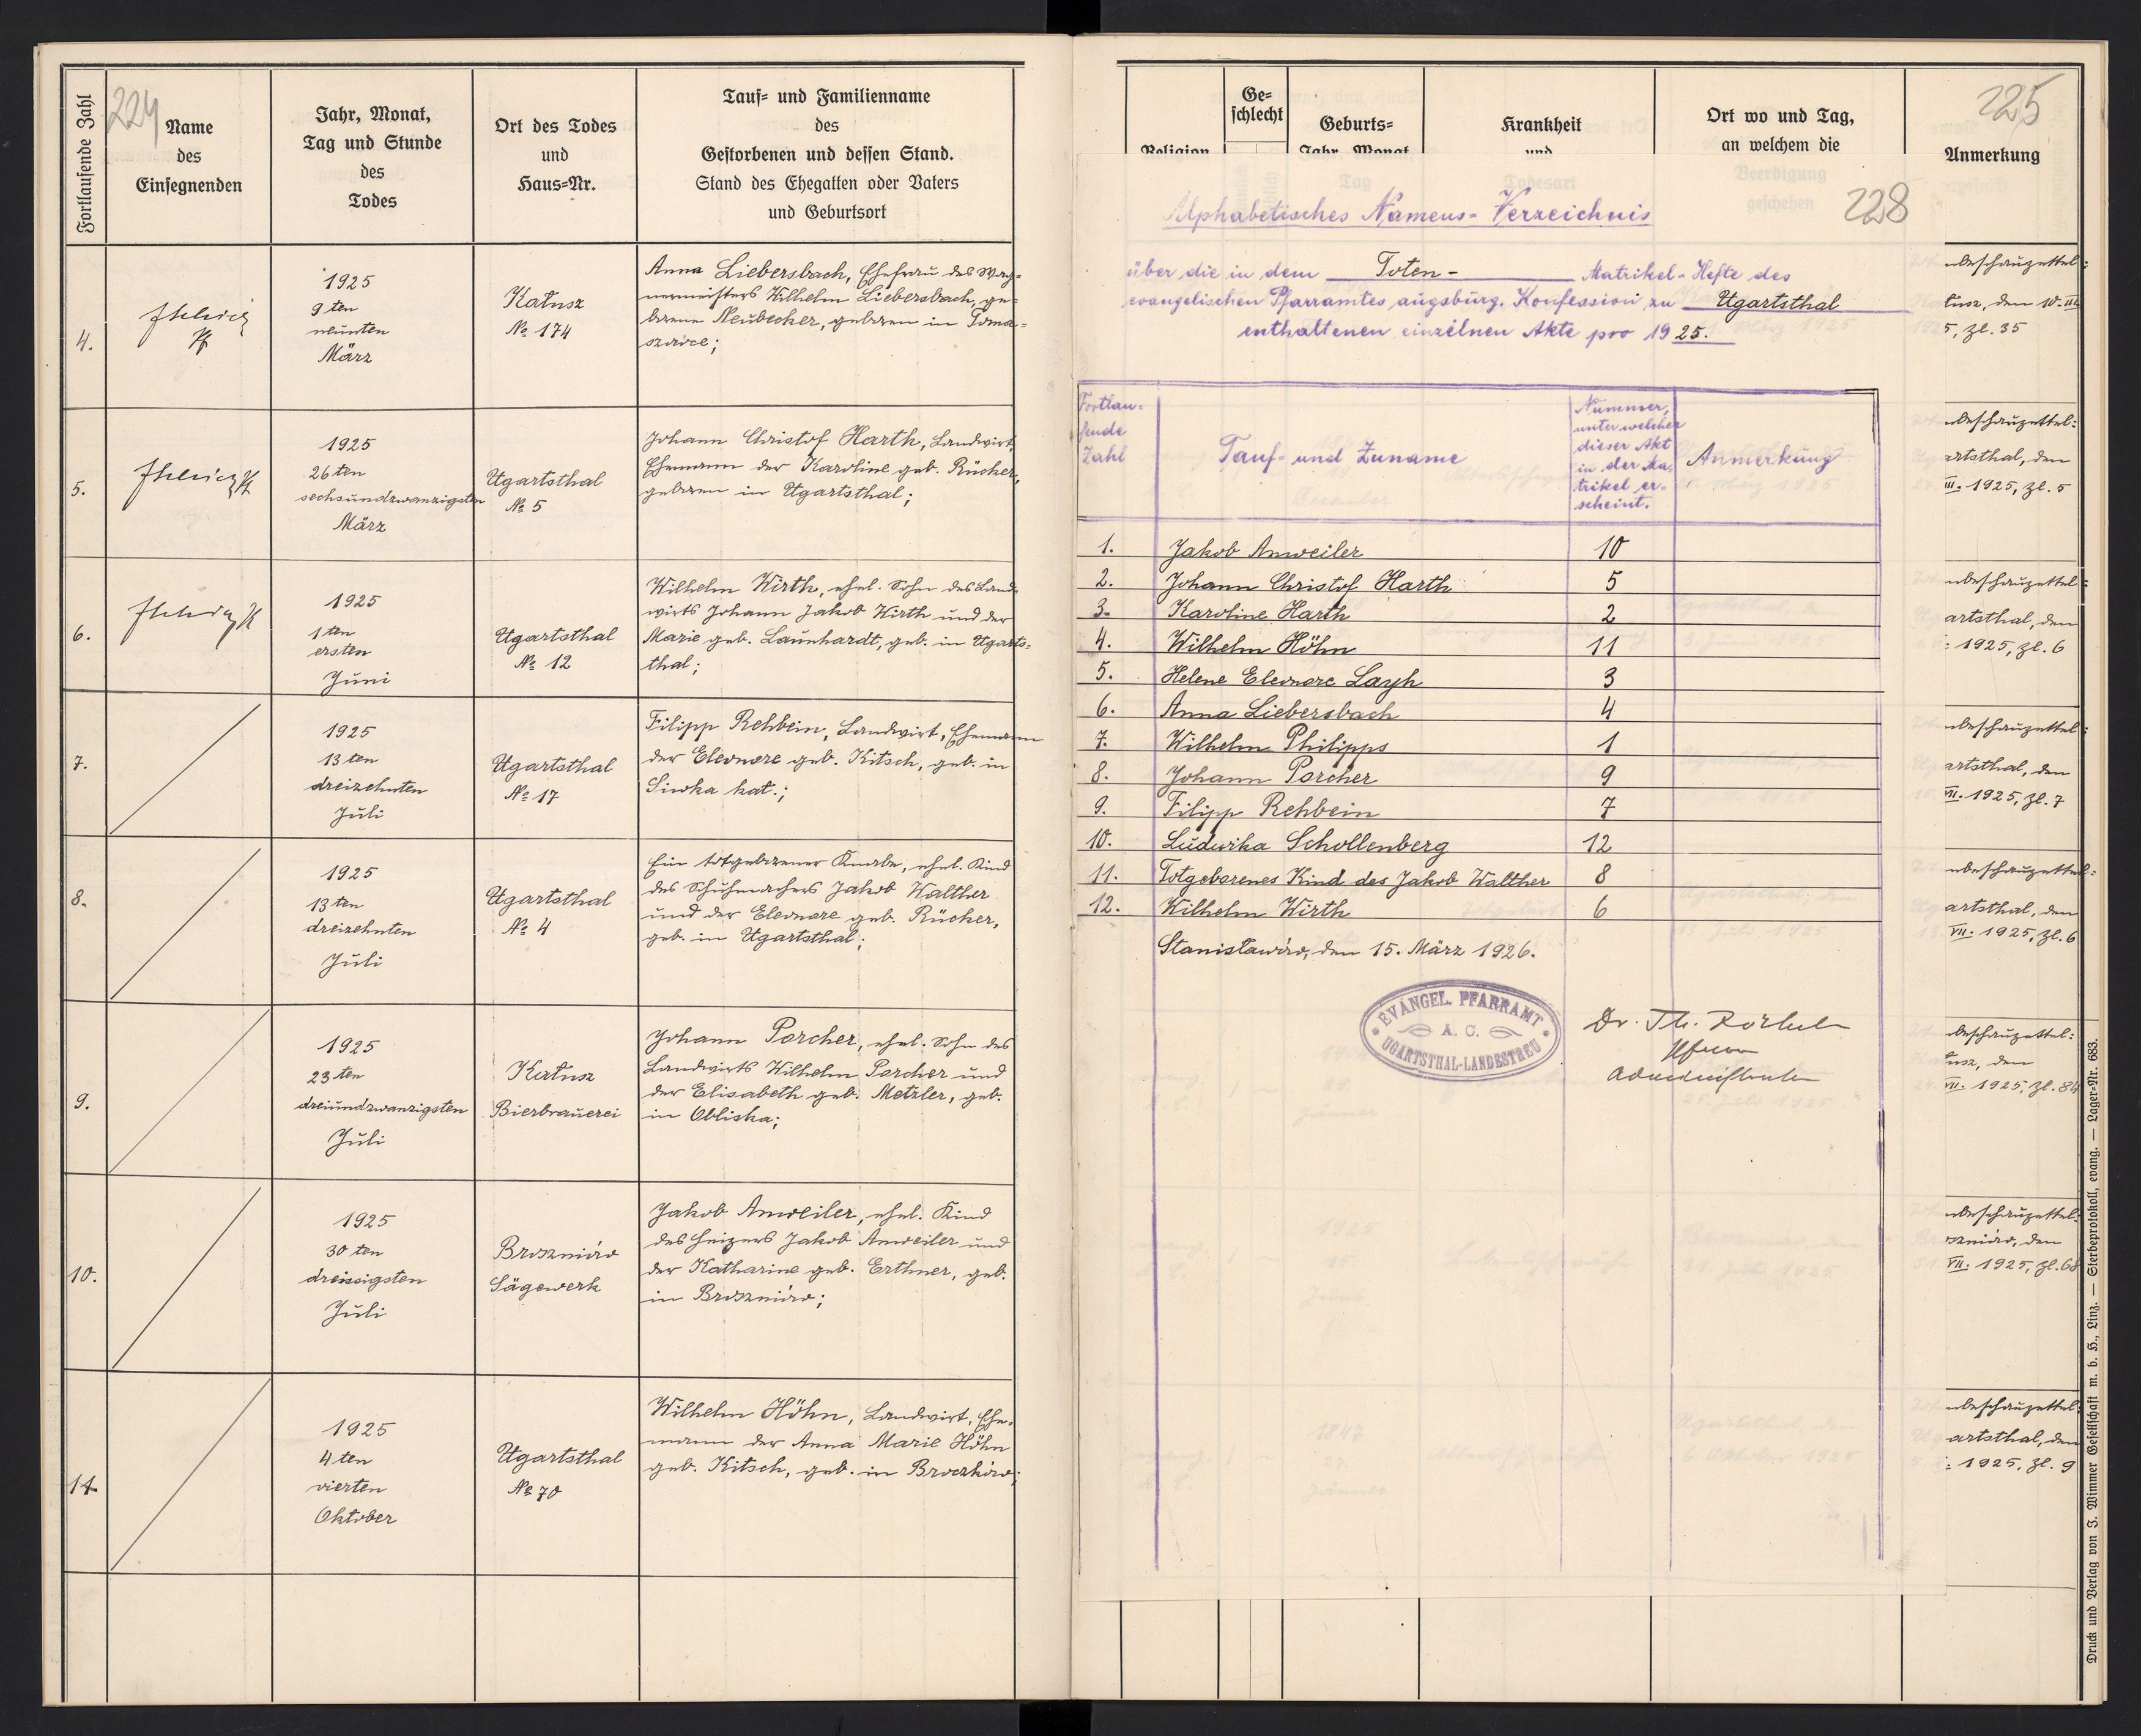 224
Fortlaufende Zahl
Name
des
Einsegnenden
Jahr, Monat,
Tag und Stunde
des
Todes
Ort des Todes
und
Haus=Nr.
Tauf= und Familienname
des
Gestorbenen und dessen Stand.
Stand des Ehegatten oder Vaters
und Geburtsort
4.
1925
9 ten
neunten
März
Kałusz
№ 174
Anna Liebersbach, Ehefrau des Wag=
nermeisters Wilhelm Liebersbach, ge=
borene Neubecker, geboren in Toma=
szowce;
5.
1925
26 ten
sechsundzwanzigsten
März
Ugartsthal
№ 5
Johann Christof Harth, Landwirt,
Ehemann der Karoline geb. Rücher,
geboren in Ugartsthal;
6.
1925
1 ten
ersten
Juni
Ugartsthal
№ 12
Wilhelm Wirth, ehel. Sohn des Land=
wirts Johann Jakob Wirth und der
Marie geb. Launhardt, geb. in Ugarts=
thal;
7.
1925
13 ten
dreizehnten
Juli
Ugartsthal
№ 17
Filipp Rehbein, Landwirt, Ehemann
der Eleonore geb. Kitsch, geb. in
Siwka kał.;
8.
1925
13 ten
dreizehnten
Juli
Ugartsthal
№ 4
Ein totgeborener Knabe, ehel. Kind
des Schuhmachers Jakob Walther
und der Eleonore geb. Rücher,
geb. in Ugartsthal;
9.
1925
23 ten
dreiundzwanzigsten
Juli
Kałusz
Bierbrauerei
Johann Porcher, ehel. Sohn des
Landwirts Wilhelm Porcher und
der Elisabeth geb. Metzler, geb.
in Obliska;
10.
1925
30 ten
dreissigsten
Juli
Broszniów
Sägewerk
Jakob Anweiler, ehel. Kind
des Heizers Jakob Anweiler und
der Katharine geb. Erthner, geb.
in Broszniów;
11.
1925
4 ten
vierten
Oktober
Ugartsthal
№ 70
Wilhelm Höhn, Landwirt, Ehe=
mann der Anna Marie Höhn
geb. Kitsch, geb. in
225
Religion
Ge=
schlecht
Geburts=
Jahr, Monat
Krankheit
und
Ort wo und Tag,
an welchem die
Anmerkung
228
Alphabetisches Namens=Verzeichnis
über die in dem Toten- Matrikel-Hefte des
evangelischen Pfarramtes augsburg. Konfession zu Ugartsthal
enthaltenen einzelnen Akte pro 1925.
Fortlau-
fende
Zahl
Tauf- und Zuname
Nummer,
unter welcher
dieser Akt
in der Ma-
trikel er-
scheint.
Anmerkung
1. Jakob Anweiler 10
2. Johann Christof Harth 5
3. Karoline Harth 2
4. Wilhelm Höhn 11
5. Helene Eleonore Layh 3
6. Anna Liebersbach 4
7. Wilhelm Philipps 1
8. Johann Porcher 9
9. Filipp Rehbein 7
10. Ludwika Schollenberg 12
11. Totgeborenes Kind des Jakob Walther 8
12. Wilhelm Wirth 6
Stanisławów, den 15. März 1926.
EVANGEL. PFARRAMT
A. C.
UGARTSTHAL-LANDESTREU
Dr. Th.
nbeschauzettel:
łusz, den 10. III.
5, Zl. 35
nbeschauzettel:
artsthal, den
III. 1925, Zl. 5
nbeschauzettel:
artsthal, den
1925, Zl. 6
nbeschauzettel:
artsthal, den
VII. 1925, Zl. 7
nbeschauzettel:
artsthal, den
VII. 1925, Zl. 6
nbeschauzettel:
łusz, den
VII. 1925, Zl. 84
nbeschauzettel:
szniów, den
VII. 1925, Zl. 68
nbeschauzettel:
artsthal, den
1925, Zl. 9
Druck und Verlag von J. Wimmer Gesellschaft m. b. H., Linz. — Sterbeprotokoll, evang. — Lager=Nr. 683.